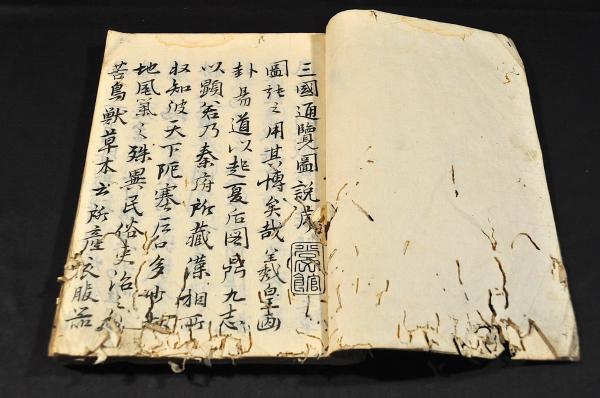 三國通覽圖說序
圖誌之用其博矣哉羲皇画
卦易道以起夏后図鼎九志
以顕若乃秦府所藏漢相所
収知彼天下阨塞戸口多少
地風氣之殊異民俗失治之
若鳥獸草木土所產衣服器